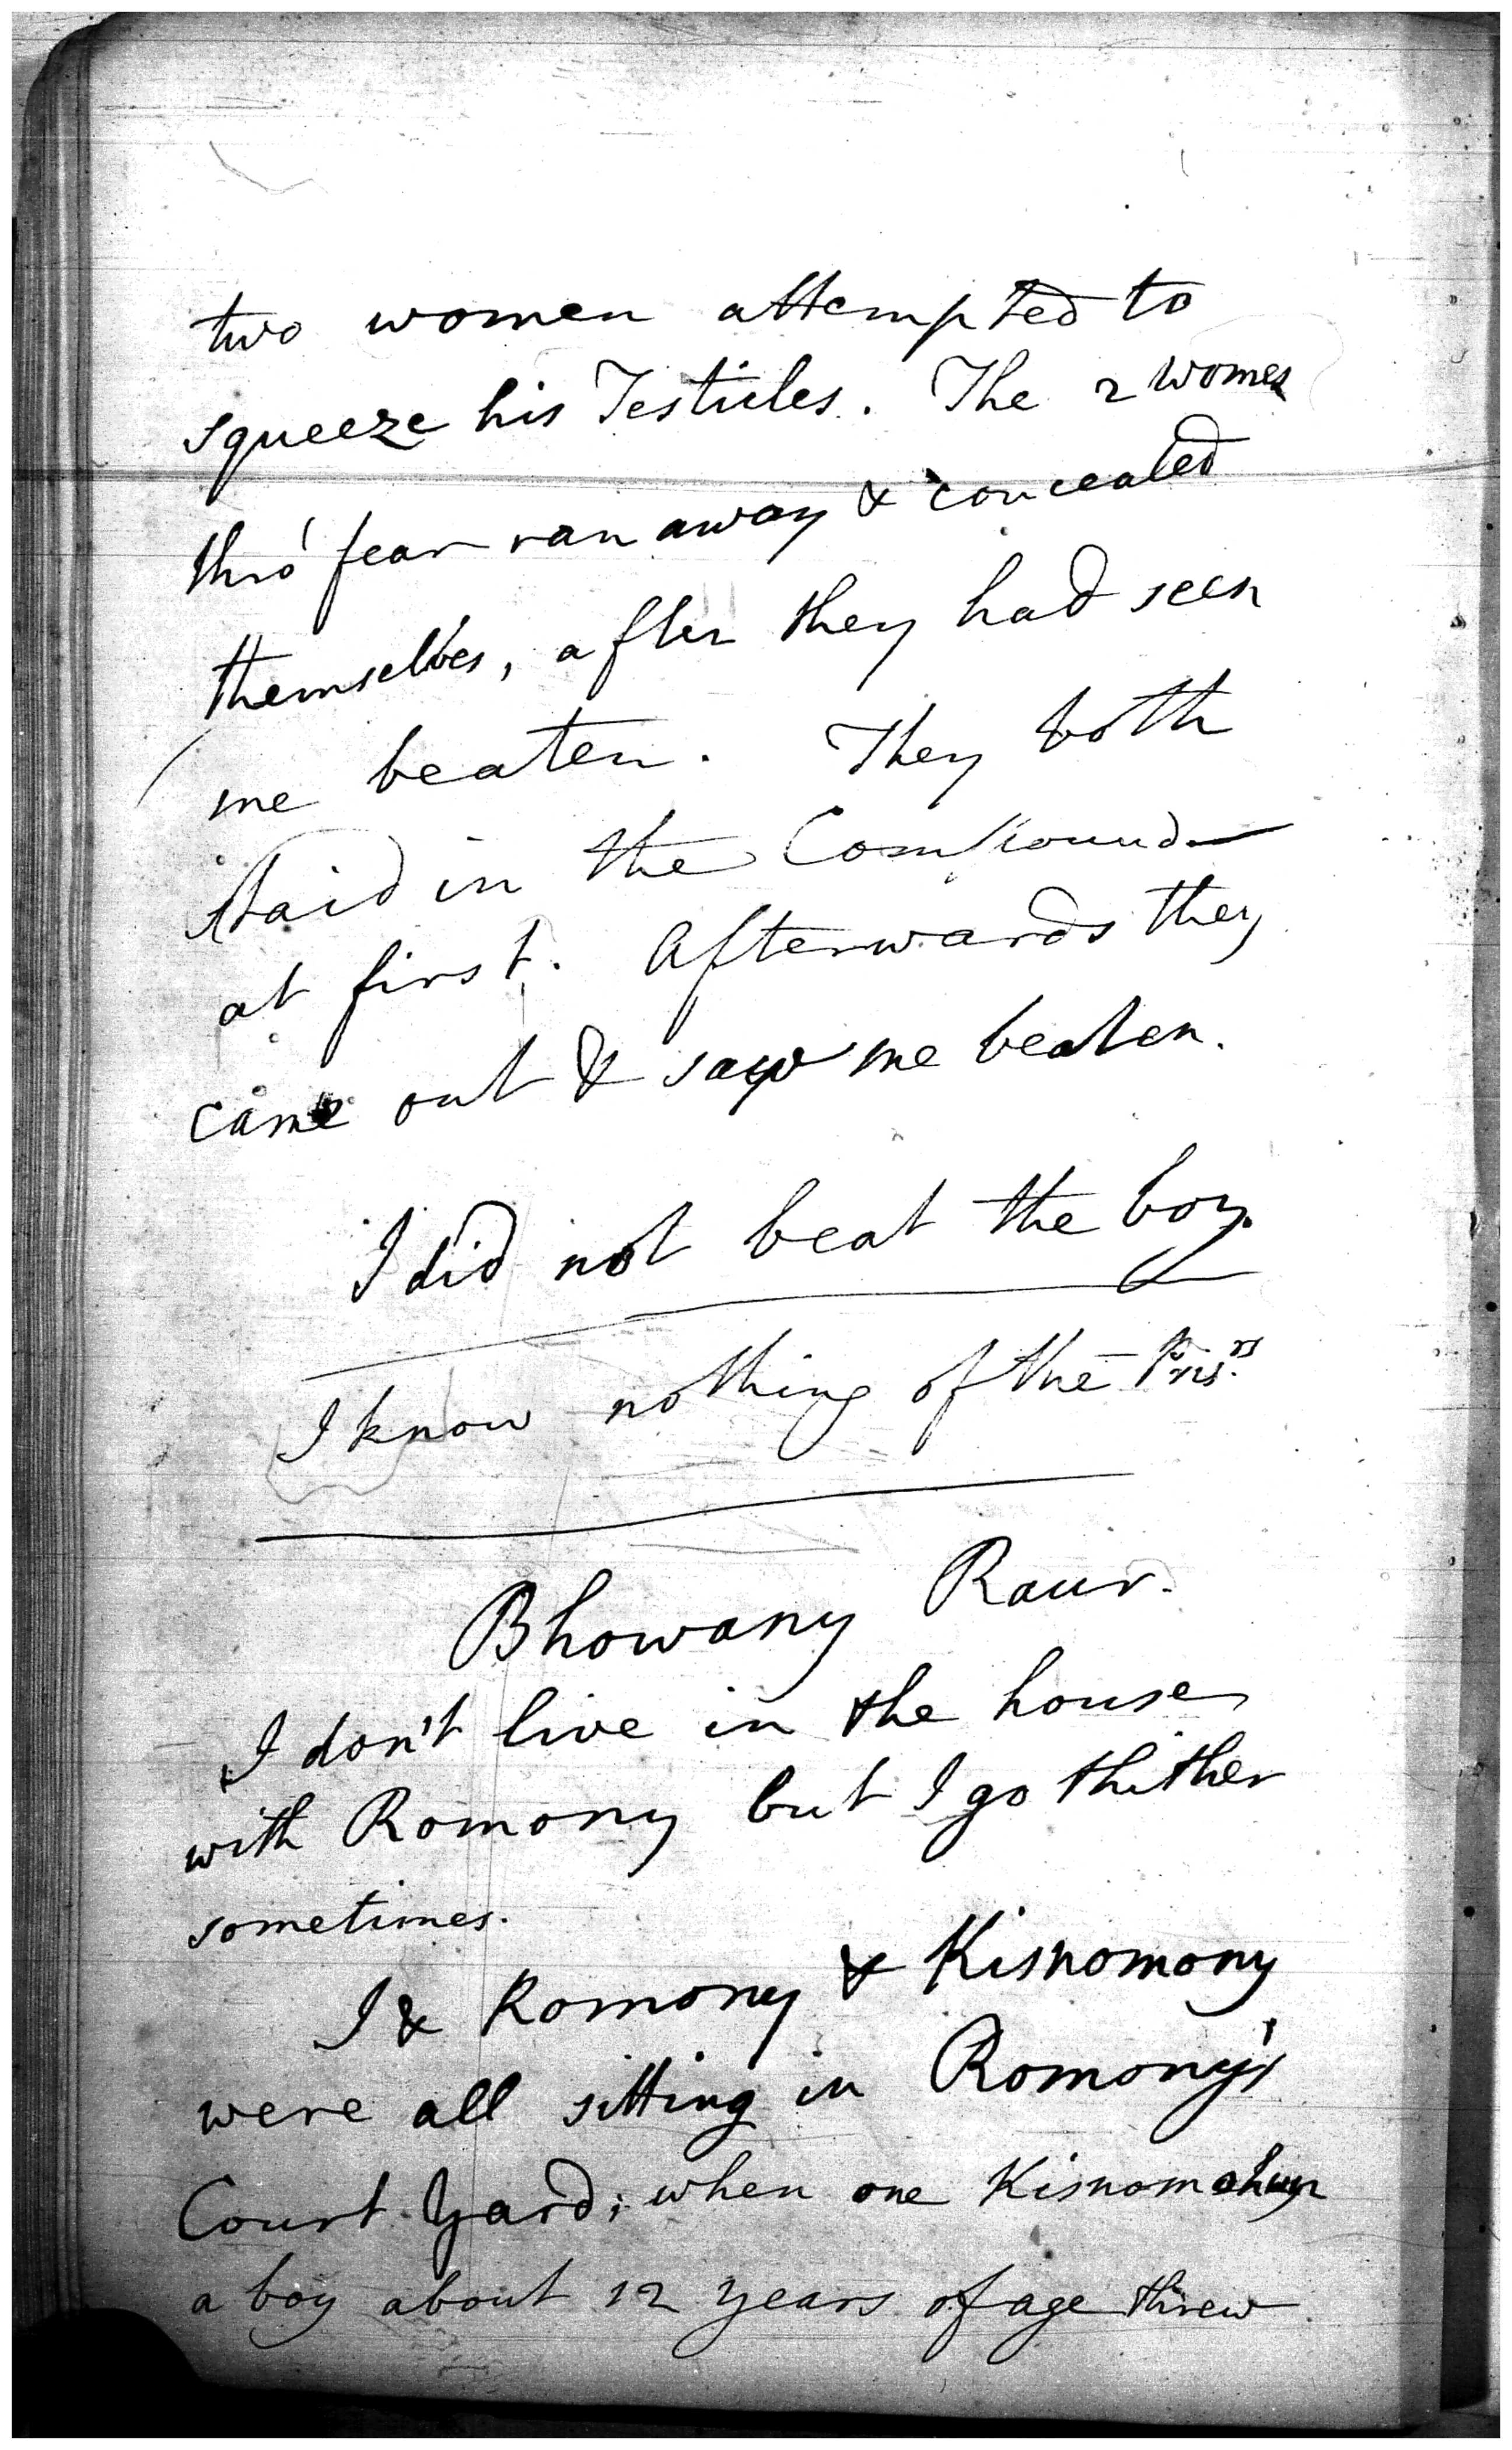 two women attempted to
squeeze his Testicles. The 2 women
thro' fear ran away & concealed
themselves, after they had seen
me beaten. They both
staid in the Compound
at first. Afterwards they
came out & saw me beaten.
I did not beat the boy.
I know nothing of the Pris.rs
Bhowany Raur.
I don't live in the house
with Romony but I go thither
sometimes.
I & Romony & Kisnomony
were all sitting in Romony's
Court Yard; when one Kisnomohun
a boy about 12 years of age threw